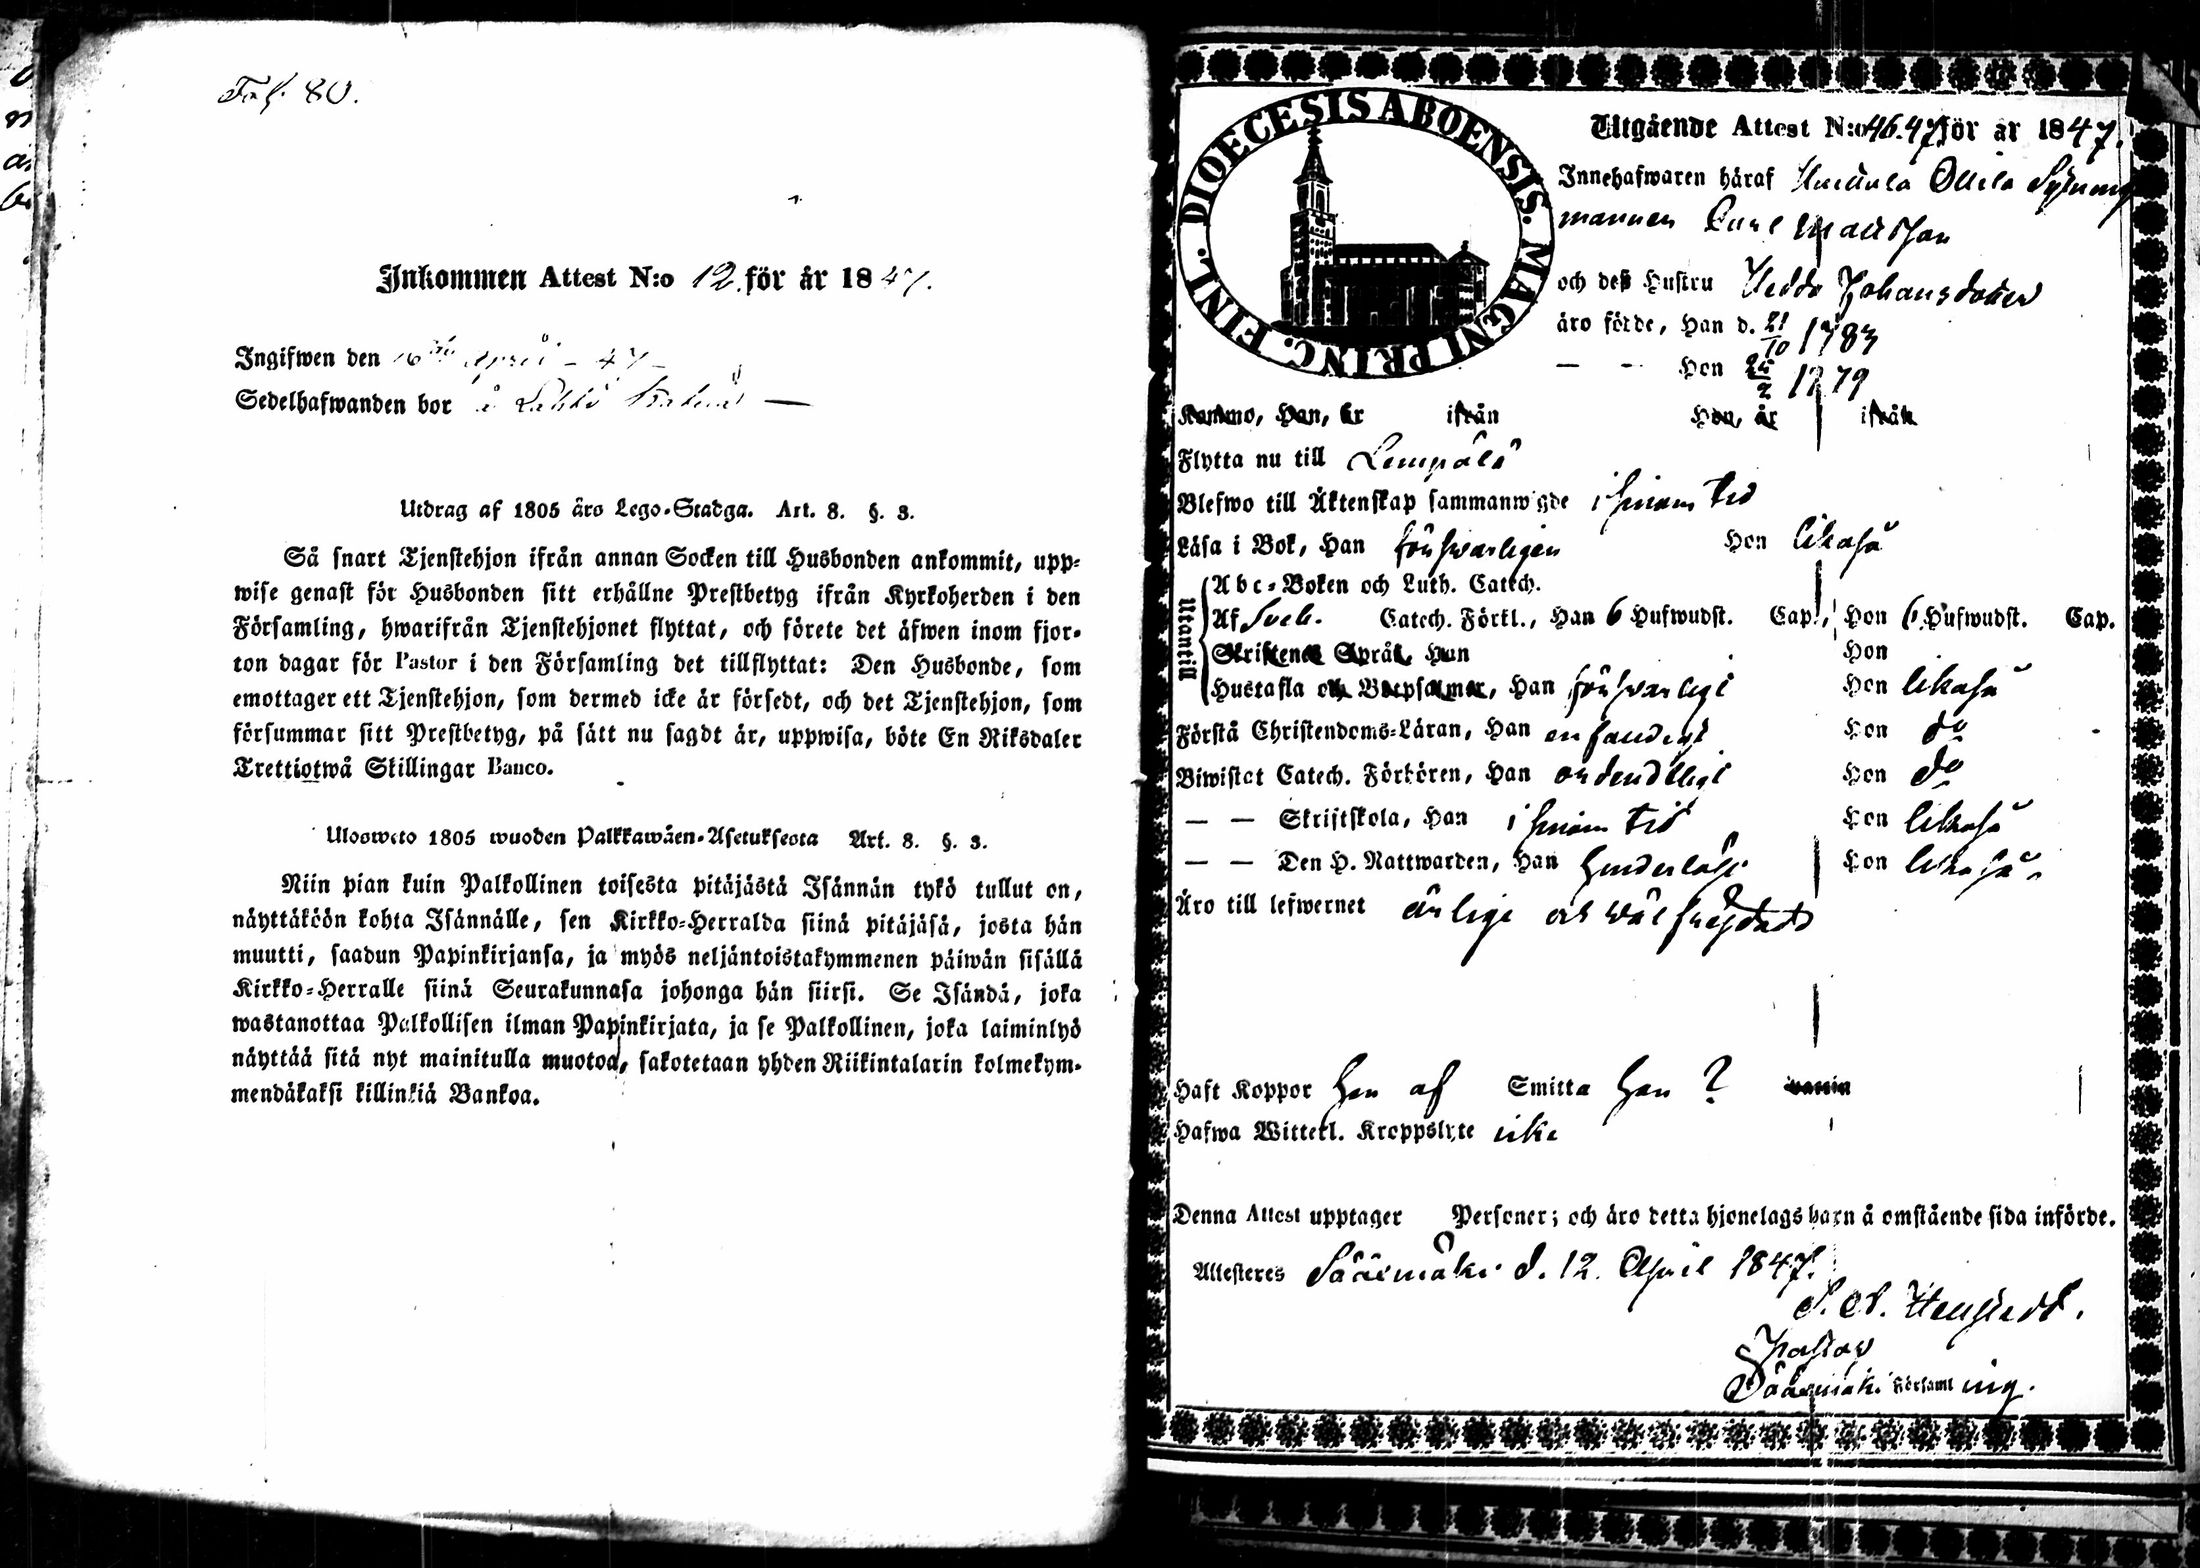 Fol. 80.
Inkommen Attest N:o 12. för år 1847.
Ingifwen den 16de April - 47 -
Sedelhafwanden bor å
Utdrag af 1805 års Lego-Stadga. Art. 8. §. 3.
Så snart Tjenstehjon ifrån annan Socken till Husbonden ankommit, upp-
wise genast för Husbonden sitt erhållne Prestbetyg ifrån Kyrkoherden i den
Församling, hwarifrån Tjenstehjonet flyttat, och förete det äfwen inom fjor-
ton dagar för Pastor i den Församling det tillflyttat: Den Husbonde, som
emottager ett Tjenstehjon, som dermed icke är försedt, och det Tjenstehjon, som
försummar sitt Prestbetyg, på sätt nu sagdt är, uppwisa, böte En Riksdaler
Trettiotwå Skillingar Banco.
Ulosweto 1805 wuoden Palkkawäen-Asetuksesta Art. 8. §. 3.
Niin pian kuin Palkollinen toisesta pitäjästä Isännän tykö tullut on,
näyttäköön kohta Isännälle, sen Kirkko-Herralda siinä pitäjäsä, josta hän
muutti, saadun Papinkirjansa, ja myös neljäntoistakymmenen päiwän sisällä
Kirkko-Herralle siinä Seurakunnasa johonga hän siirsi. Se Isändä, joka
wastanottaa Palkollisen ilman Papinkirjata, ja se Palkollinen, joka laiminlyö
näyttää sitä nyt mainitulla muotoa, sakotetaan yhden Riikintalarin kolmekym-
mendäkaksi killinkiä Bankoa.
DIOECESIS ABOENSIS. MAGNI PRINC. FINL.
Utgående Attest N:o 46.47 för år 1847.
Innehafwaren häraf Ollila Sytning
mannen Carl Mattsson
och deß Hustru Hedda Johansdotter
äro födde, Han d. 21/10 1783
— — Hon 25/2 1779
Kommo, Han, år ifrån Hon, år ifrån
Flytta nu till Lempälä
Blefwo till Äktenskap sammanwigde i sinom tid
Läsa i Bok, Han försvarligen Hon likaså
Utantill
Abc-Boken och Luth. Catech.
Af Sveb. Catech. Förkl., Han 6 Hufwudst. Cap., Hon 6 Hufwudst. Cap.
Skriftenes Språk, Han Hon
Hustafla och Botpsalmer, Han försvarligt Hon likaså
Förstå Christendoms-Läran, Han enfaldigt Hon do
Biwistat Catech. Förhören, Han ordentligt Hon do
— — Skriftskola, Han i sinom tid Hon likaså
— — Den H. Nattwarden, Han Hon likaså
Äro till lefwernet ärlige och väl frejdade
Haft Koppor han af Smitta han ? vaccin
Hafwa Witterl. Kroppslyte icke
Denna Attest upptager Personer; och äro detta hjonelags barn å omstående sida införde.
Attesteres Sääxmäki d. 12. April 1847.
Pastor
Sääxmäki Församling.